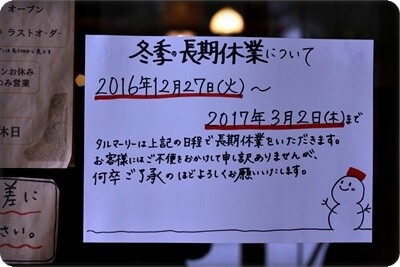 オープン
ラストオーダー
ンお休み
のみ営業
休日
差に
さい。
冬季の長期休業について
2016年12月27日(火)〜
2017年3月2日(木)まで
タルマーリーは上記の日程で長期休業をいただきます。
お客様にはご不便をおかけして申し訳ありませんが、
何卒ご了承のほどよろしくお願いいたします。